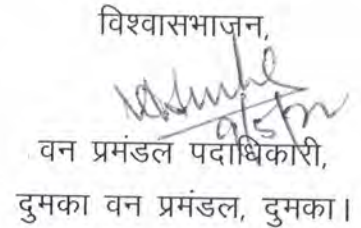 विश्वासभाजन,
वन प्रमंडल पदाधिकारी,
दुमका वन प्रमंडल, दुमका।